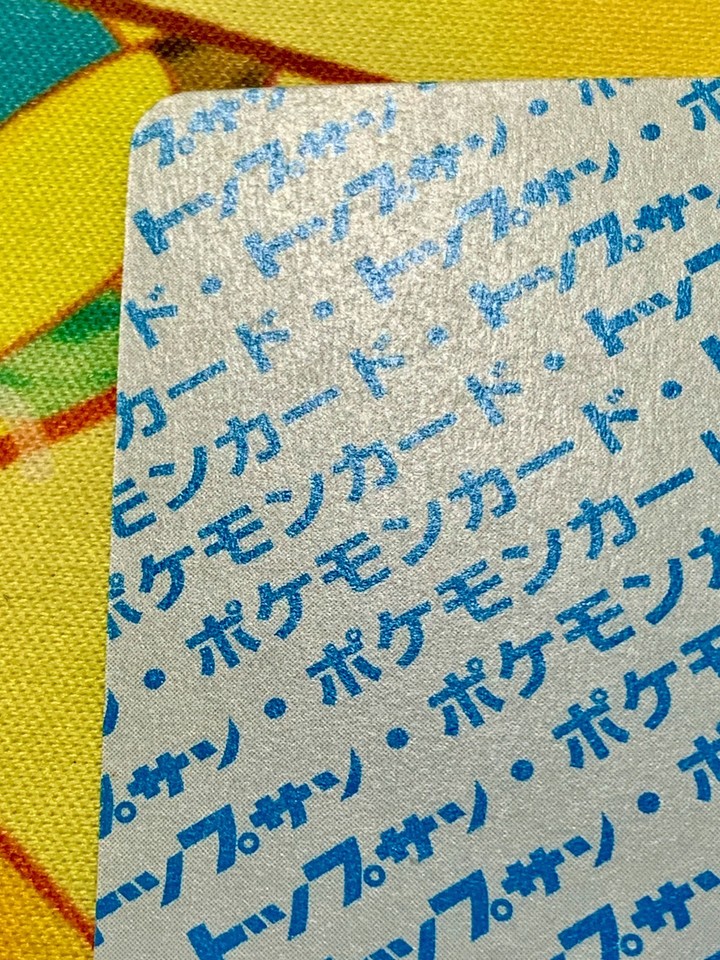 プサン
トップサン・
ド・トップサン・ポ
カード・トップサン・ポ
モンカード・トップサン
ポケモンカード・トップサ
ン・ポケモンカード・ト
プサン・ポケモンカード
トップサン・ポケモンカ
トップサン・ポケモ
トップサン・ポ
トップサ